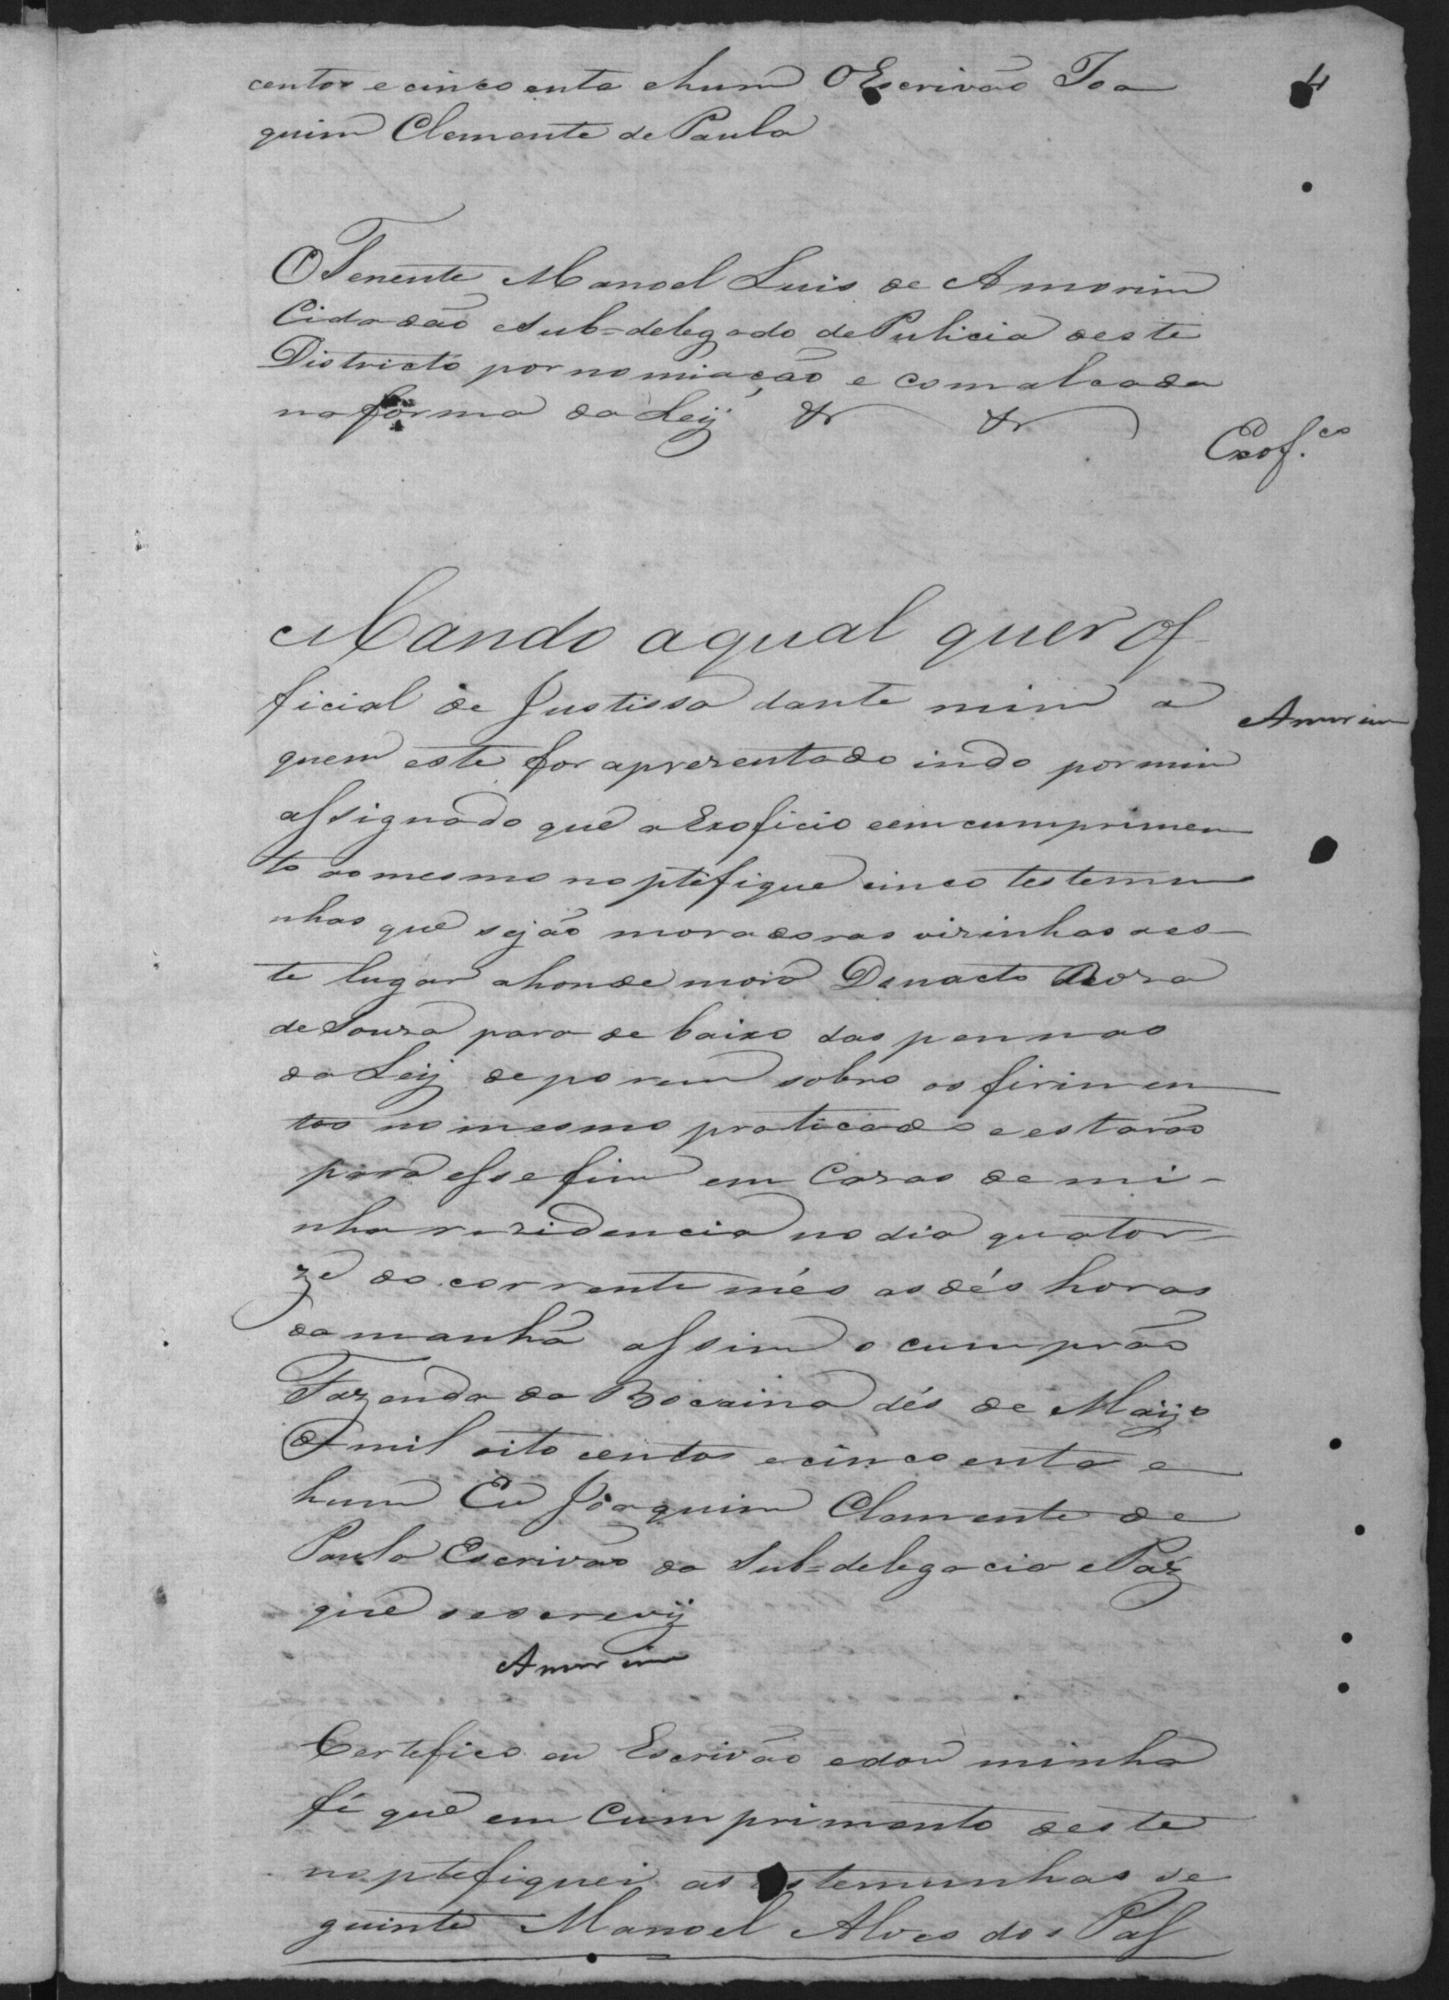 centos e cincoenta e hum O Escrivão Joa
quim Clemente de Paula
4
O Tenente Manoel Luis de Amorim
Cidadão e Sub=delegado de Pulicia deste
Districto por nomiação e com alcada
na forma da Leÿ &r &r
Exof.co
Mando aqual quer of-
ficial de Justissa dante mim a
Amorim
quem este for aprezentado indo por mim
assignado que a Exoficio e em cumprimen
to ao mesmo noptefique cinco testemu
nhas que sejão moradoras vizinhas des-
te lugar ahonde mora Donacto Roza
de Souza para de baixo das pennas
da Leÿ deporem sobre os firimen
tos no mesmo praticado e estarão
para esse fim em Cazas de mi-
nha rezidencia no dia quator-
ze do corrente més as dés horas
da manhã assim o cumprão
Fazenda da Bocaina dés de Mayo
de mil oito centos e cincoenta e
hum Eu Joaquim Clemente de
Paula Escrivão da Sub=delegacia e Paz
que o escrevÿ
Amorim
Certefico eu Escrivão e dou minha
fé que em Cumprimento deste
noptefiquei as testemunhas se
guinte Manoel Alves dos Pass